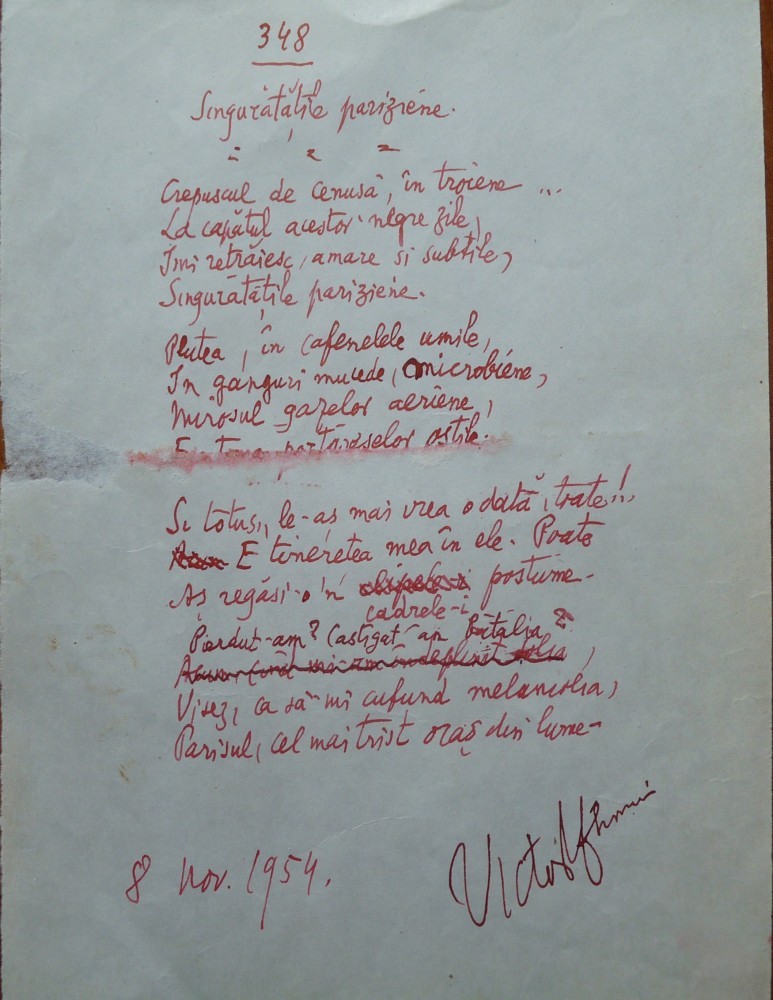 348
Singurătățile pariziene.
Crepuscul de cenusă, în troiene ...
La capătul acestor negre zile,
Îmi retrăiesc, amare si subtile,
Singurătățile pariziene.
Plutea, în cafenelele umile,
In ganguri mucede, microbiene,
Mirosul gazelor aeriene,
portăreselor ostile.
Si totuș, le-aș mai vrea odată, toate!..
E tinerețea mea în ele. Poate
Aș regăsi-o 'n cadrele-i postume.
Pierdut-am? Castigat-am bătălia?
Visez, ca să-mi cufund melancolia,
Parisul, cel mai trist oraș din lume-
8 Nov. 1954.
Victor Eftimiu